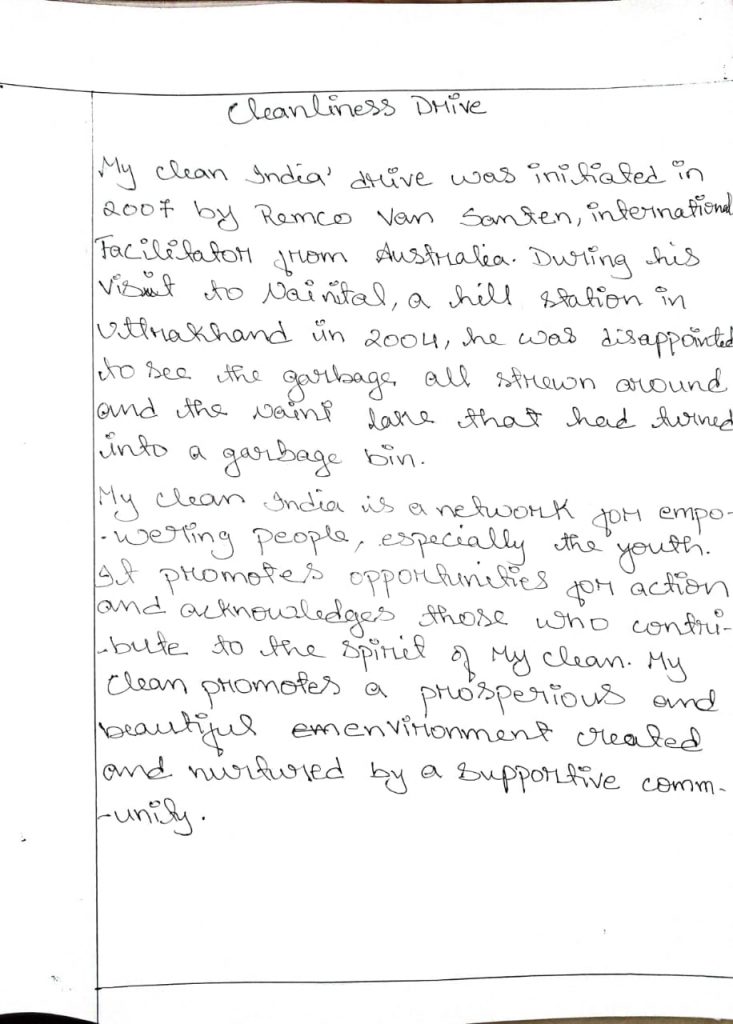 Cleanliness Drive
My clean India' drive was initiated in
2007 by Remco Van Santen, international
Facilitator from Australia. During his
visit to Nainital, a hill station in
Uttrakhand in 2004, he was disappointed
to see the garbage all strewn around
and the Naini lake that had turned
into a garbage bin.
My clean India is a network for empo-
-wering people, especially the youth.
It promotes opportunities for action
and acknowledges those who contri-
-bute to the spirit of My clean. My
clean promotes a prosperious and
beautiful em environment created
and nurtured by a supportive comm-
-unity.